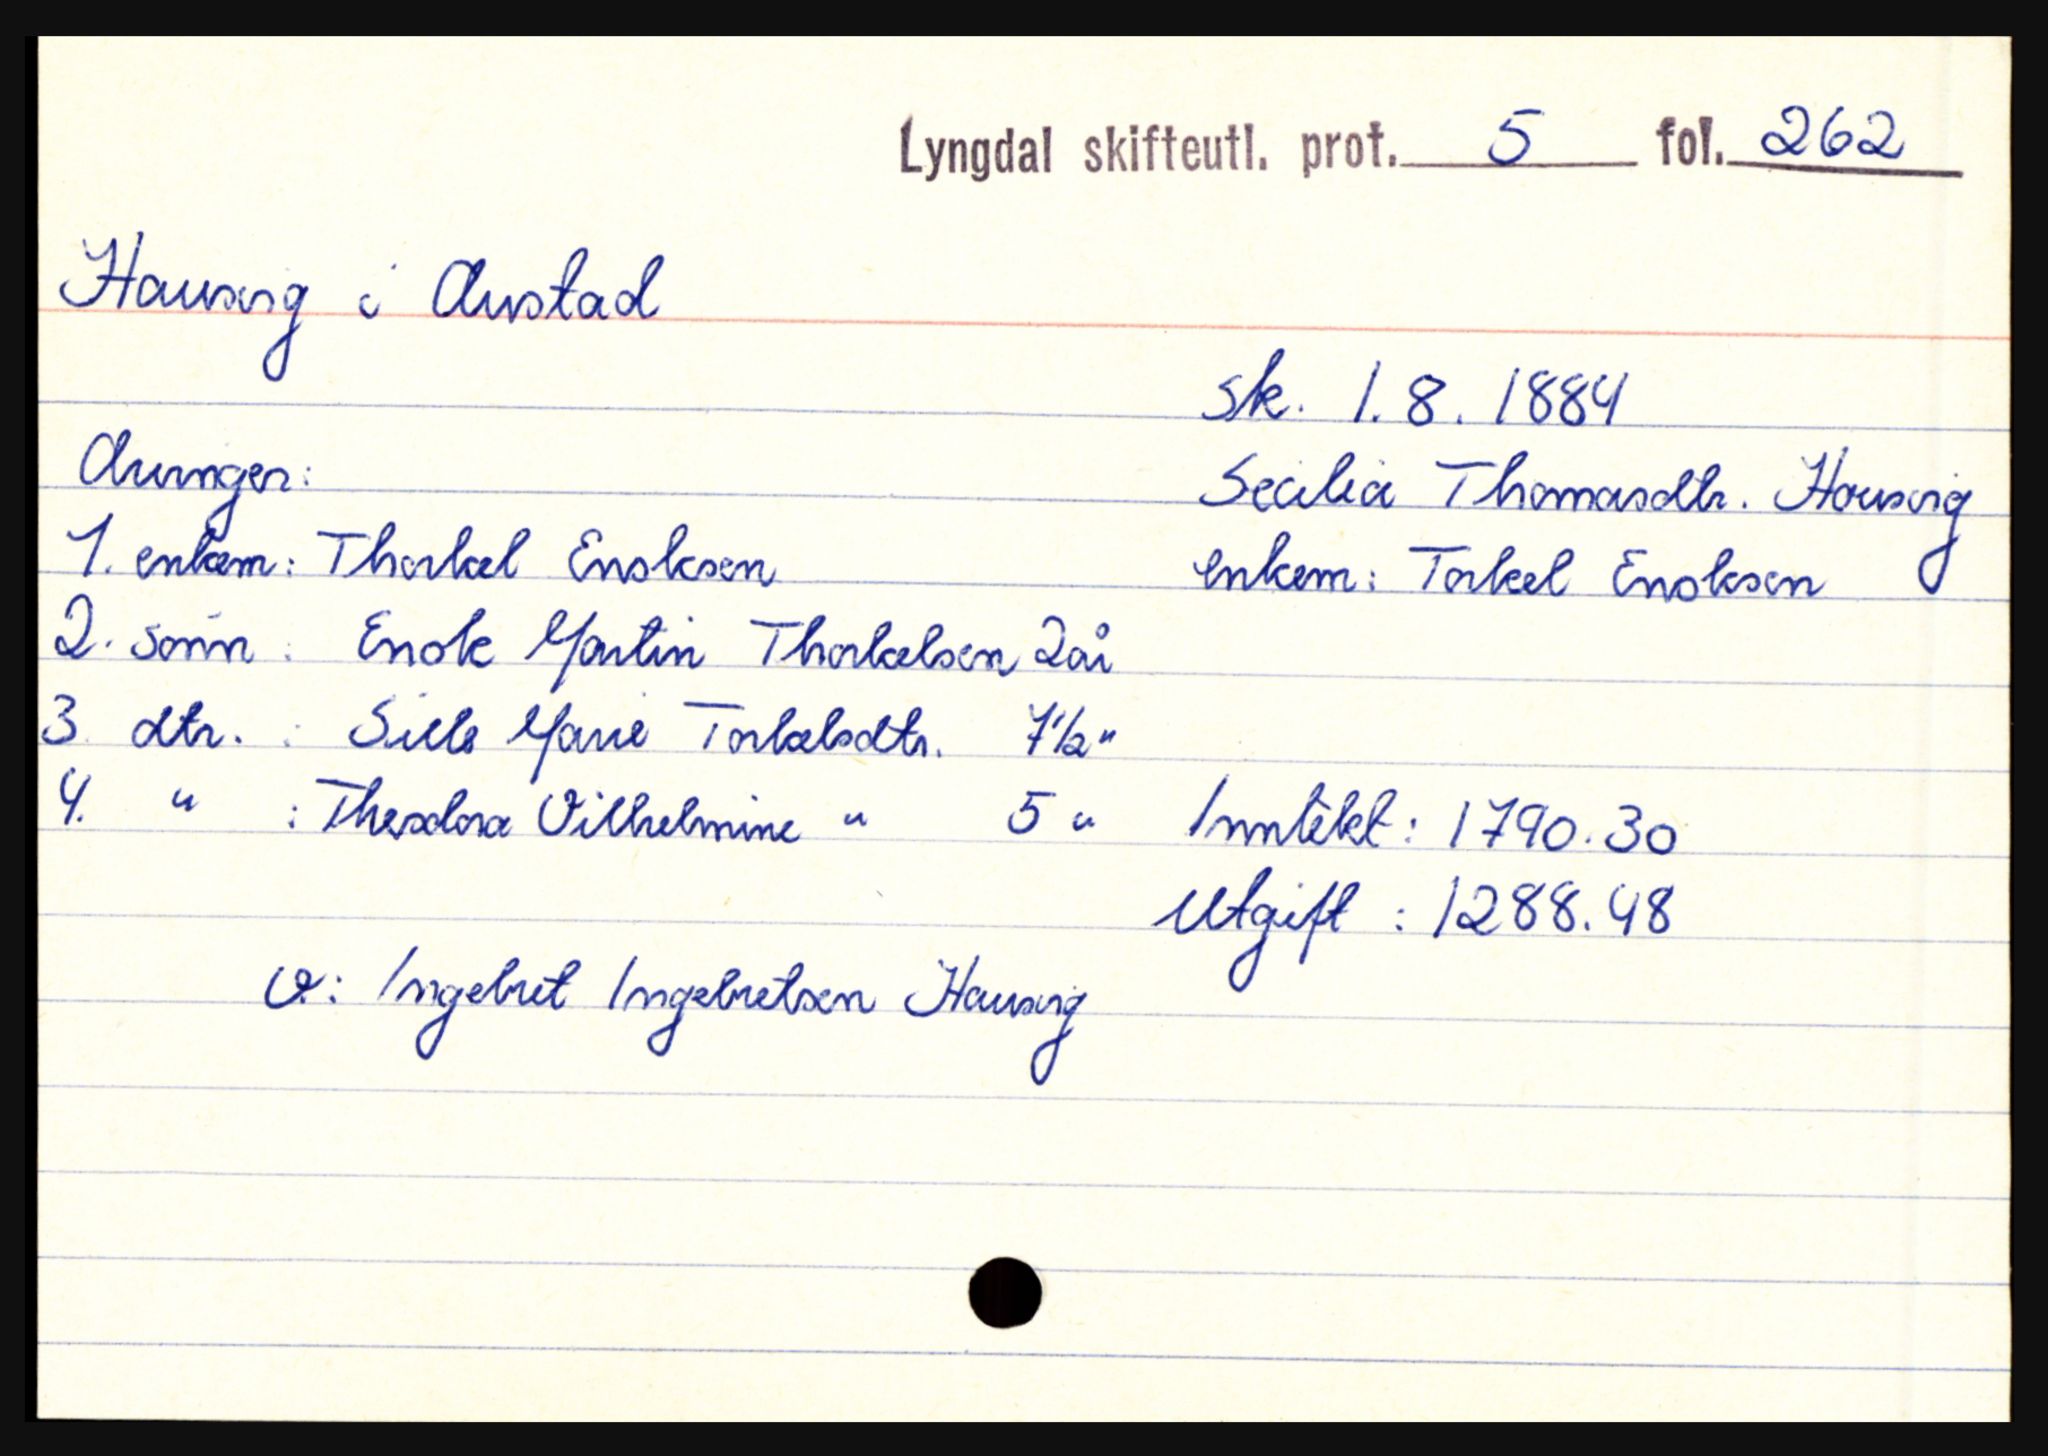 Lyngdal skifteutl. prot. 5 fol. 262
Hausvig i Austad
sk. 1.8.1884
Arvinger:
Secilia Thomasdtr. Hausvig
1. enkem: Thorkel Enoksen
enkem: Torkel Enoksen
2. sønn : Enok Martin Thorkelsen 2 år
3. dtr. : Sille Marie Torkelsdtr. 7½ "
4. " : Theodora Vilhelmine " 5 "
Inntekt: 1790.30
Utgift : 1288.48
v: Ingebret Ingebretsen Hausvig